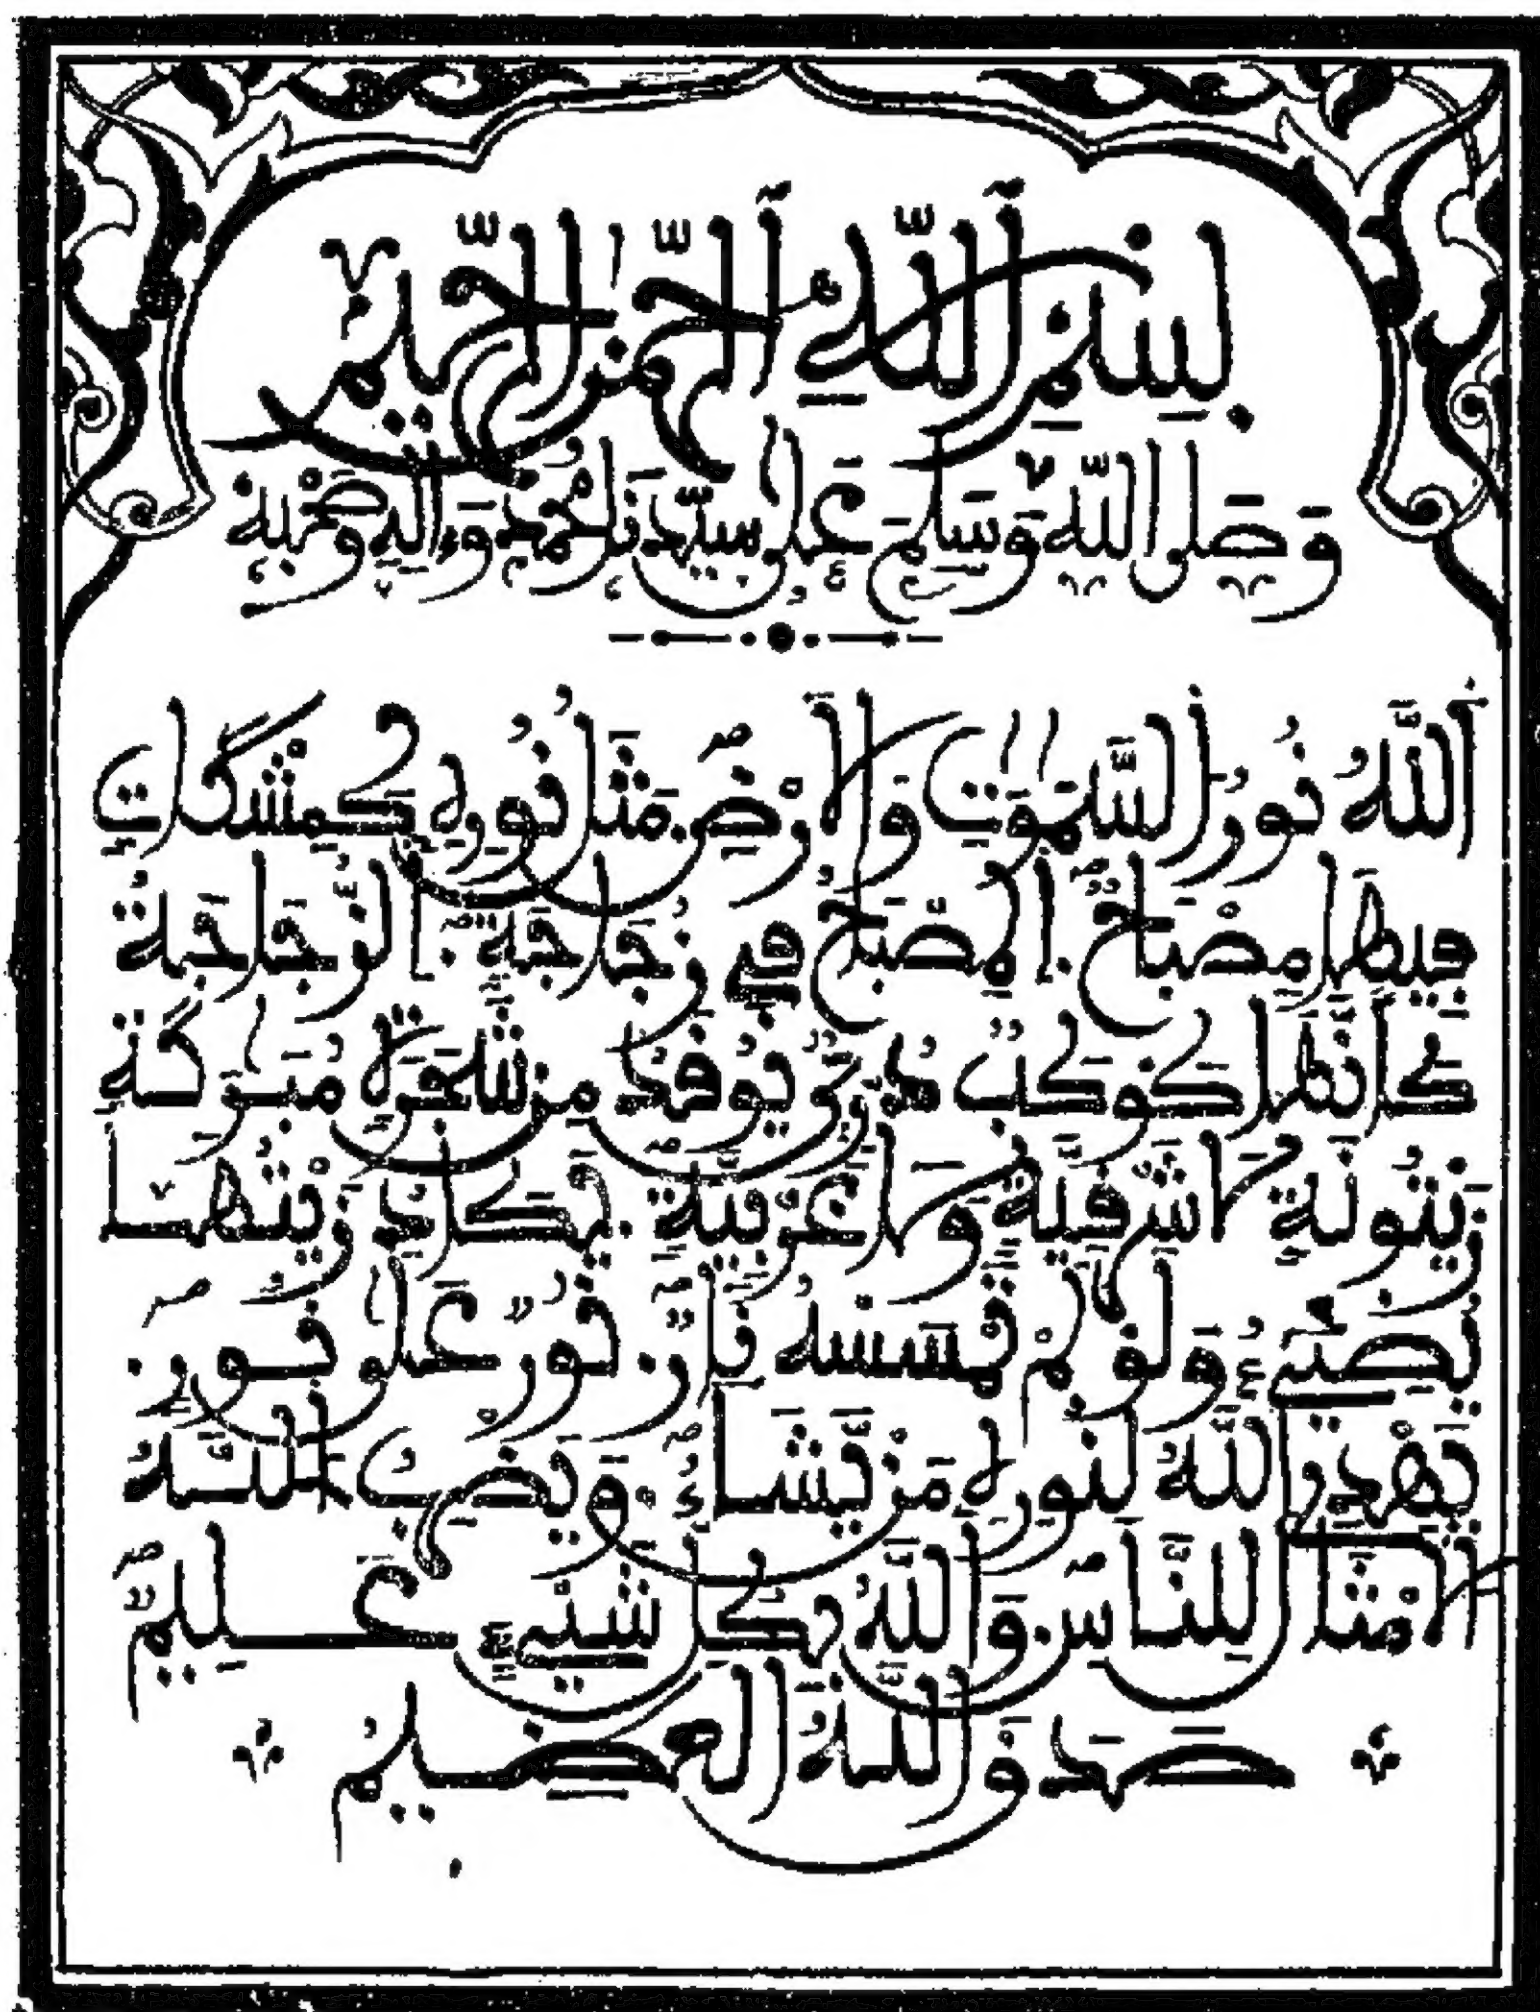 بِسْمِ اللَّهِ الرَّحْمَٰنِ الرَّحِيمِ
وَصَلَّى اللَّهُ وَسَلَّمَ عَلَى سَيِّدِنَا مُحَمَّدٍ وَءَالِهِ وَصَحْبِهِ
اللَّهُ نُورُ السَّمَٰوَٰتِ وَالَارْضِ مَثَلُ نُورِهِ كَمِشْكَاتٍ
فِيهَا مِصْبَاحٌ الْمِصْبَاحُ فِي زُجَاجَةٍ الزُّجَاجَةُ
كَأَنَّهَا كَوْكَبٌ دُرِّيٌّ يُوقَدُ مِن شَجَرَةٍ مُّبَٰرَكَةٍ
زَيْتُونَةٍ لَّا شَرْقِيَّةٍ وَلَا غَرْبِيَّةٍ يَكَادُ زَيْتُهَا
يُضِيءُ وَلَوْ لَمْ تَمْسَسْهُ نَارٌ نُّورٌ عَلَى نُورٍ
يَهْدِي اللَّهُ لِنُورِهِ مَنْ يَّشَاءُ وَيَضْرِبُ اللَّهُ
الَامْثَالَ لِلنَّاسِ وَاللَّهُ بِكُلِّ شَيْءٍ عَلِيمٌ
صَدَقَ اللَّهُ الْعَظِيمُ